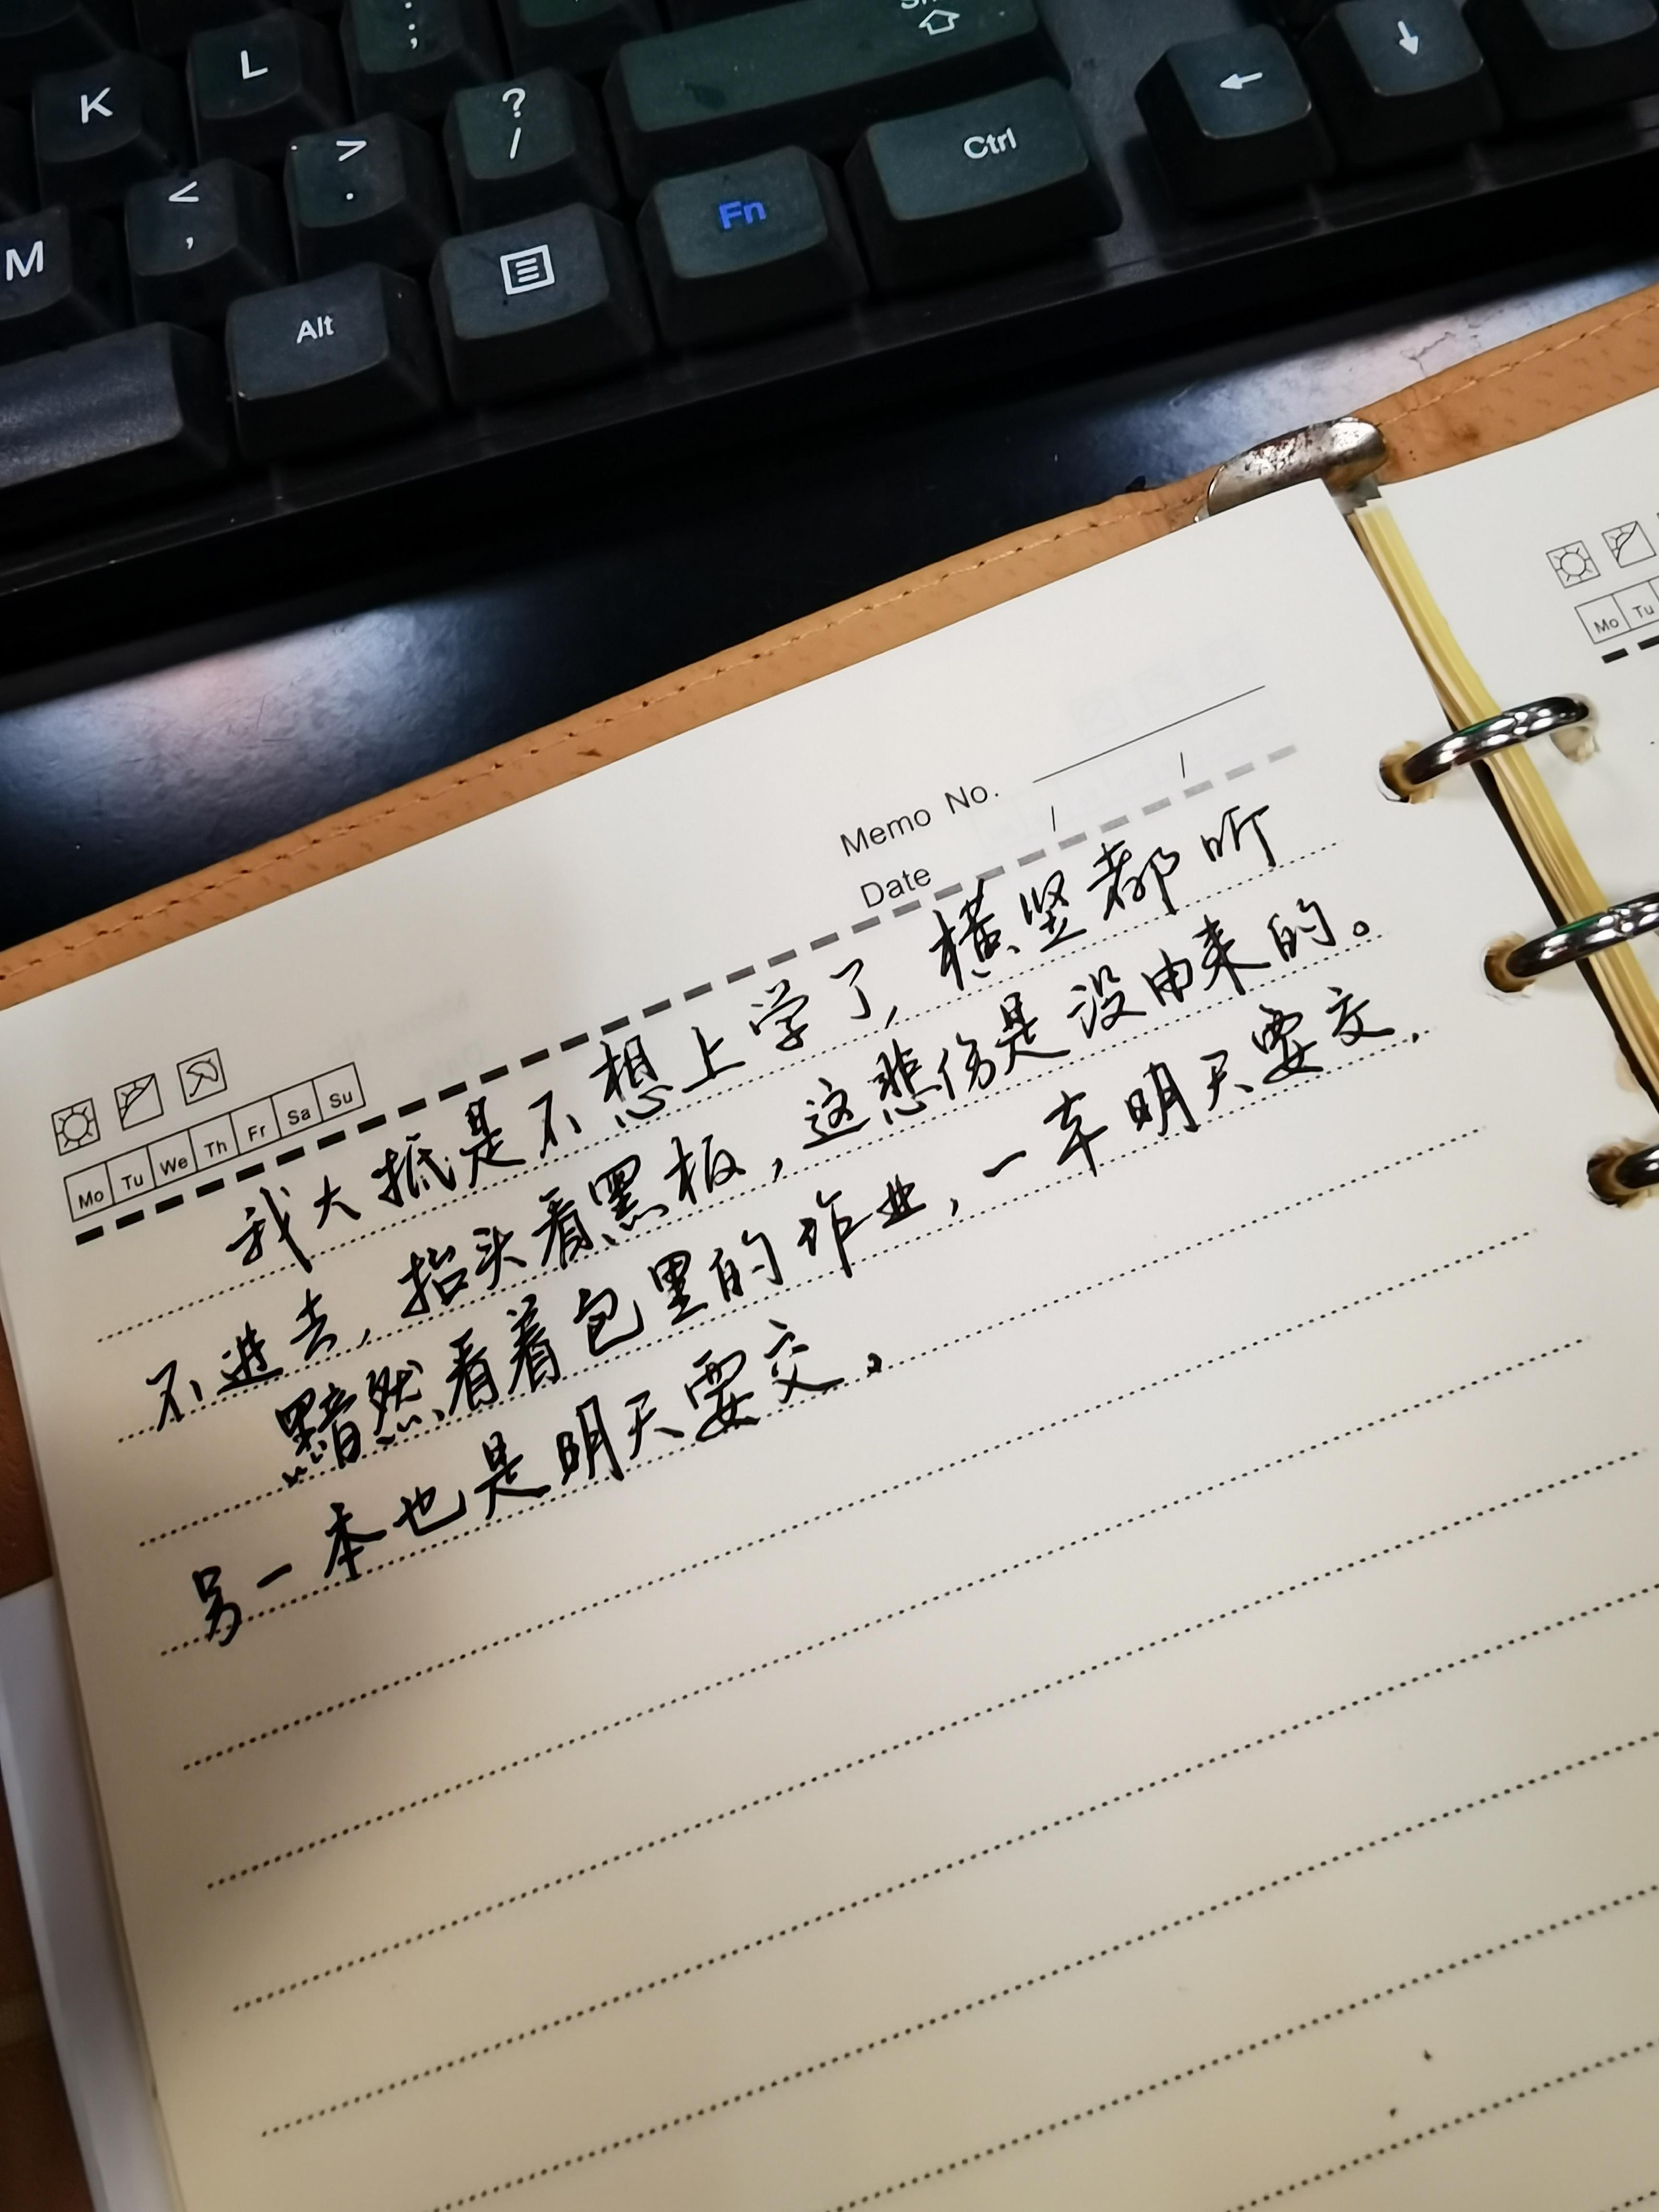 Sh
K
L
;
:
?
/
>
.
<
,
M
Alt
Fn
Ctrl
Memo No.
Date / /
Mo Tu We Th Fr Sa Su
Mo Tu
我大抵是不想上学了,横竖都听
不进去,抬头看黑板,这悲伤是没由来的。
黯然看着包里的作业,一本明天要交,
另一本也是明天要交。